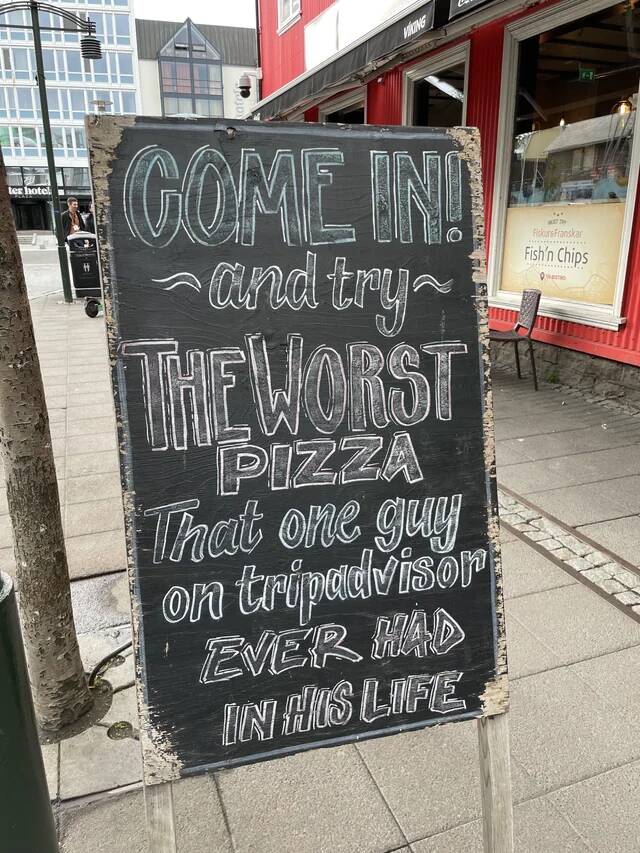 COME IN!
~and try~
THE WORST
PIZZA
That one guy
on tripadvisor
EVER HAD
IN HIS LIFE
VIKING
ter hotel
PLAZA
MUST TRY
Fiskur & Franskar
Fish'n Chips